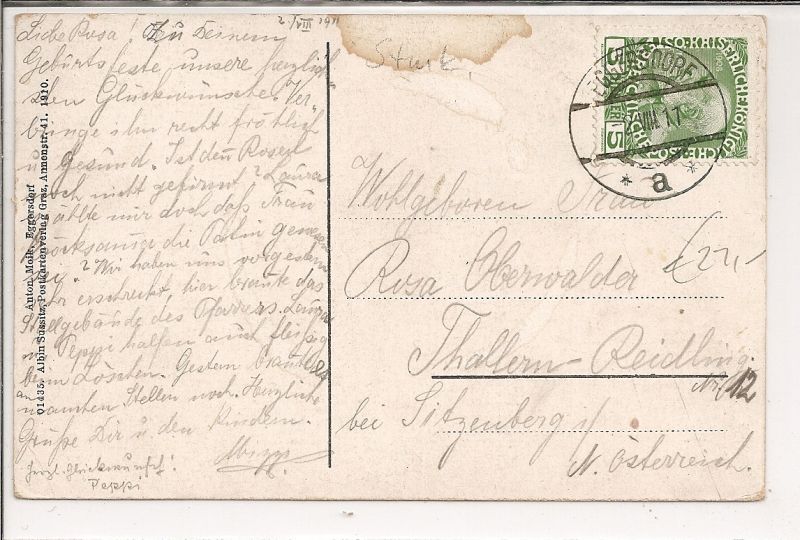 2./VIII 1911
Liebe Rosa! Zu Deinem
Geburtsfeste unsere herzlich-
sten Glückwünsche. Ver-
bringe ihn recht fröhlich
u. Gesund. Ist den Rosen
noch nicht gefirmt? Laura
zählte mir doch daß Frau
die Patin gewesen
sei? Wir haben uns vorgestern
erschreckt, hier brante das
Stallgebäude des Pfarrers. Laura
u. Peppi halfen auch fleißig
beim Löschen. Gestern brant es
an manchen Stellen noch. Herzliche
Grüße Dir u. den Kindern.
Mizzi
Herzl. Glückwunsch!
Peppi
Anton Molk, Eggersdorf
01435. Albin Sussitz, Postkartenverlag Graz, Annenstr. 41. 1910.
EGGERSDORF
VIII 11
* a *
5 KAISERLICHE KÖNIGL 5
Wohlgeboren Frau
Rosa Oberwalder
€ 27,-
Thallern-Reidling
Nr. 12
bei Sitzenberg i/
N. Österreich.